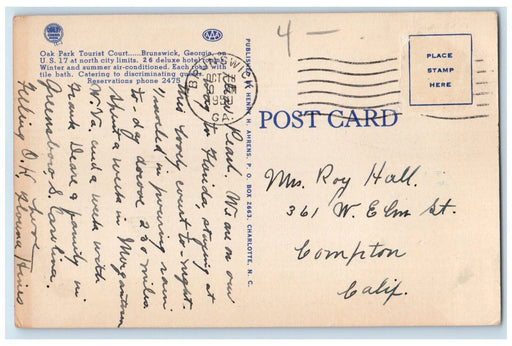 4 —
Oak Park Tourist Court.....Brunswick, Georgia, on
U. S. 17 at north city limits. 26 deluxe hotel rooms.
Winter and summer air-conditioned. Each room with
tile bath. Catering to discriminating guests.
Reservations phone 2475
AAA
PUBLISHED BY HENRY H. AHRENS, P. O. BOX 2663, CHARLOTTE, N. C.
Dear Pearl, We are on our
way to Florida, staying at
this lovely court to-night.
Traveled in pouring rain
to-day drove 230 miles
Spent a week in Morgantown
W. Va. and a week with
Frank Deane & family in
Greensboro S. Carolina.
Feeling O.K. Love
POST CARD
PLACE
STAMP
HERE
Mrs. Roy Hall.
361 W. Elm St.
Compton
Calif.